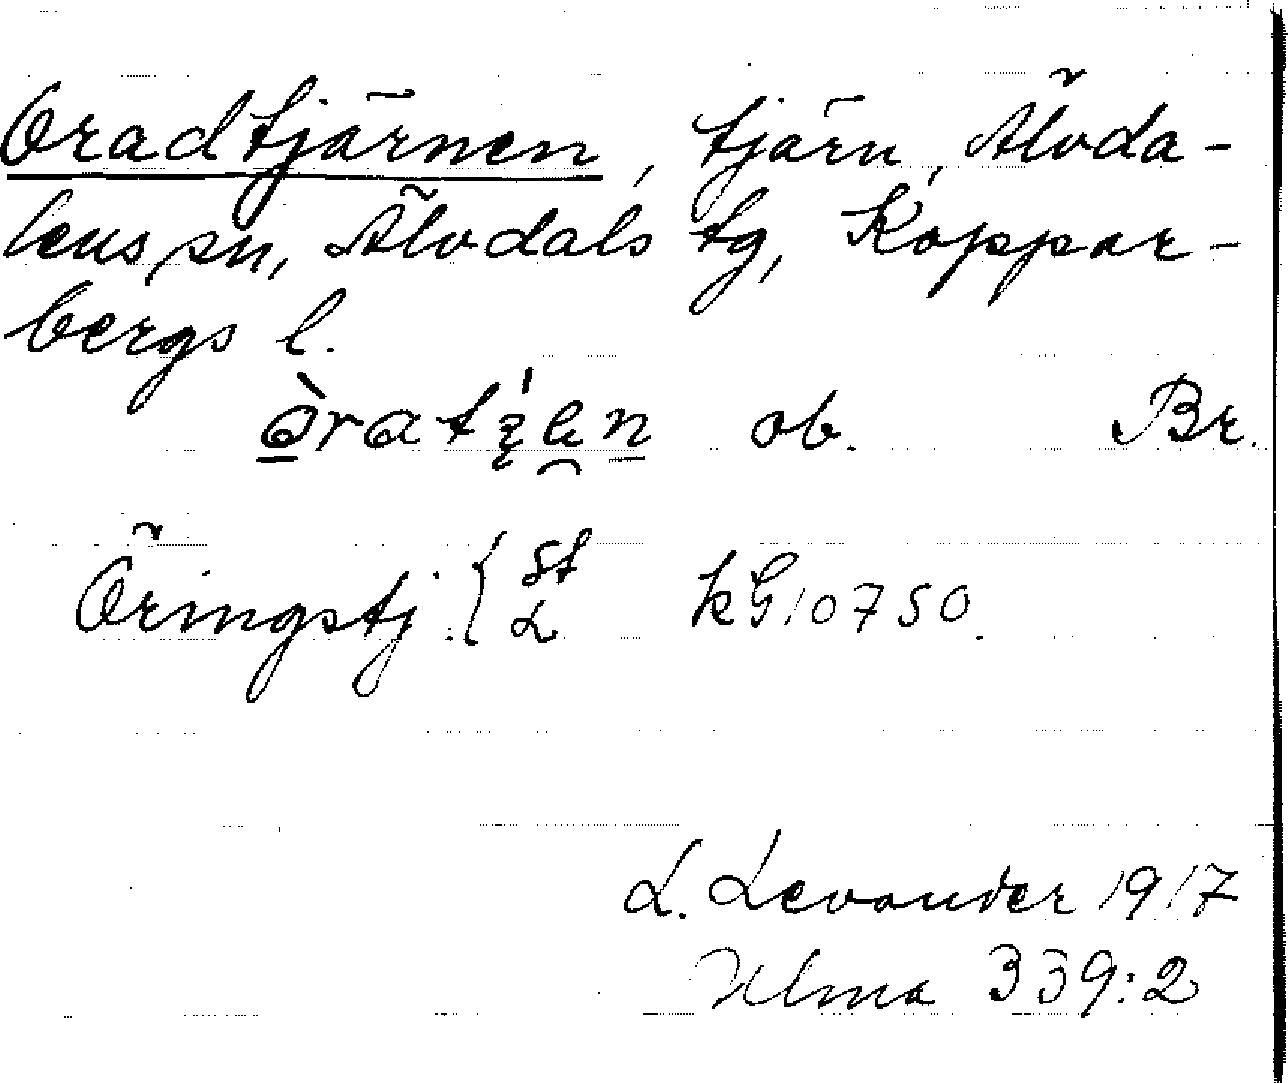 Oradtjärnen, tjärn, Älvda-
lens sn, Älvdals tg, Koppar-
bergs l.
ob. Br.
Öringstj. { St L kG 10750.
L. Levander 1917
Ulma 339:2